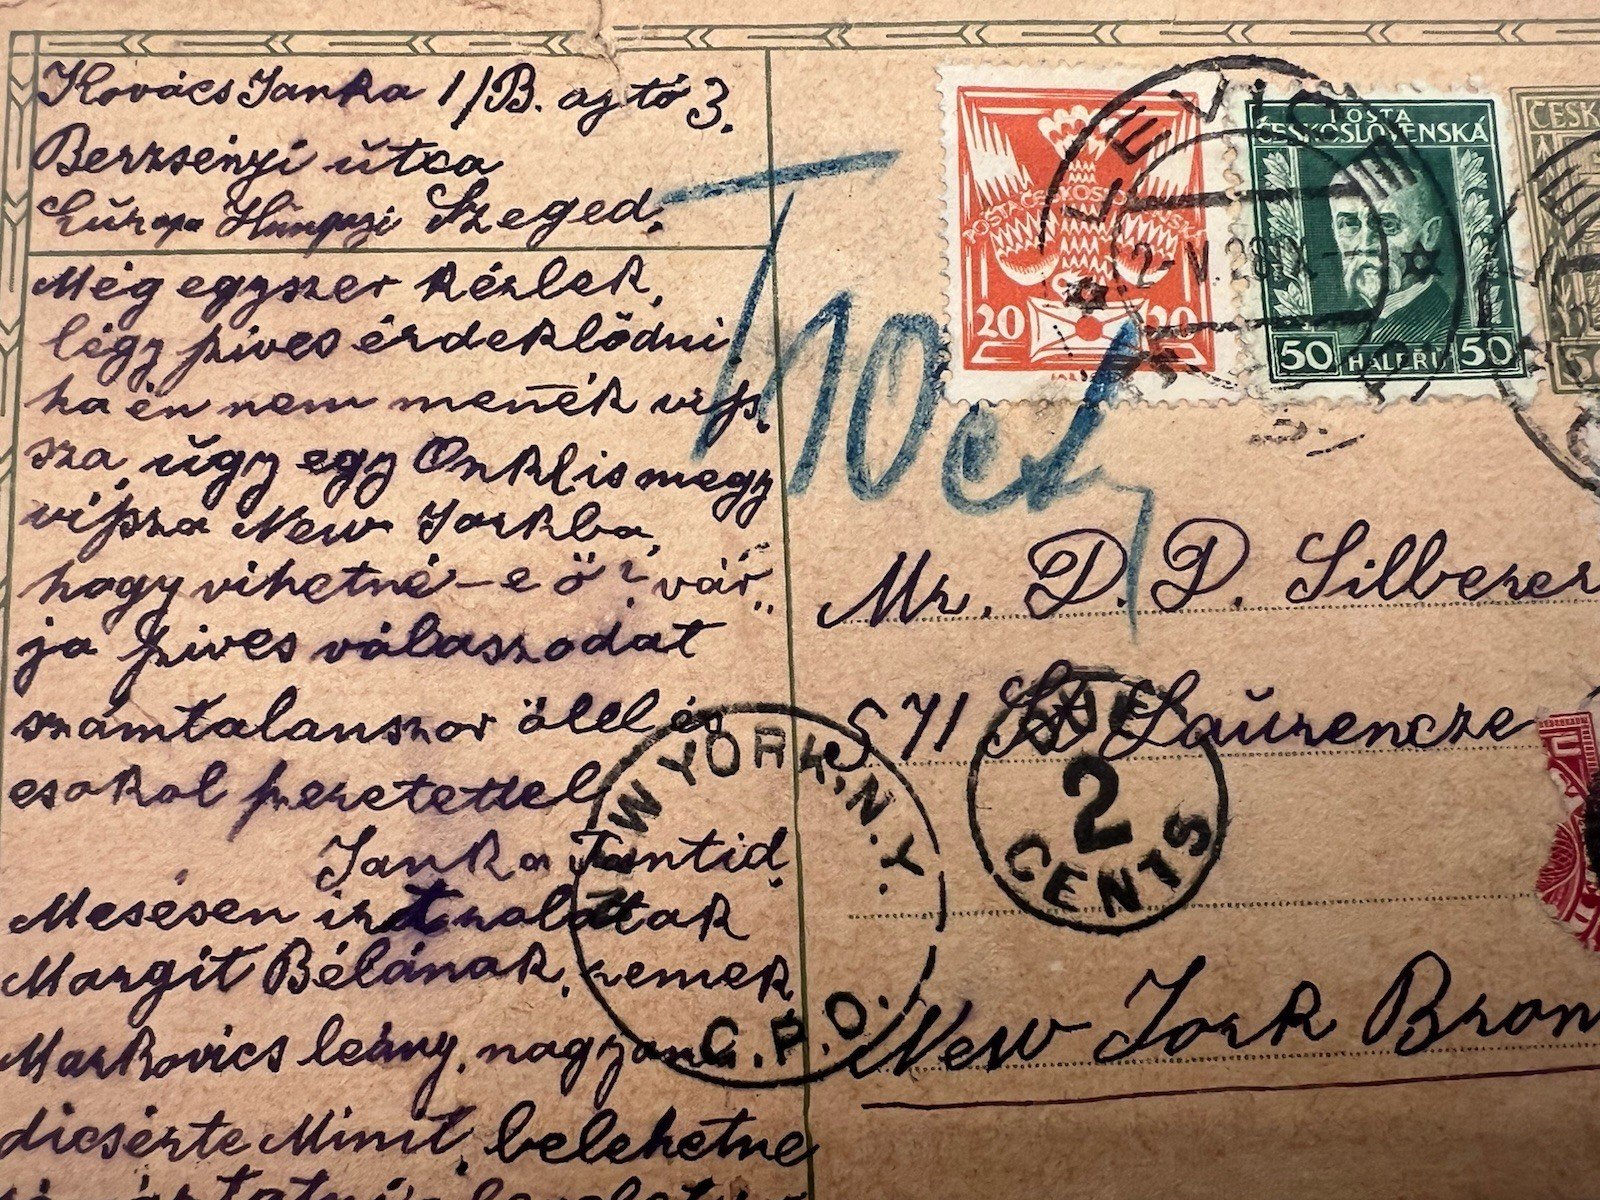 Kovács Janka 1/B. ajtó 3.
Berzsényi ŭtca
Eŭropa Hŭngari Szeged.
Még egyszer kérlek,
légy szives érdeklödni
ha én nem menék visz
sza, ŭgy egy Onklis megy
vissza New Jorkba,
hogy vihetné-e ö? vár„
ja szives válaszodat
számtalanszor ölel és
csokol szeretettel
Janka Tantid.
Mesésen irt rolatak
Margit Bélának, remek
Markovics leány, nagyon
dicsérte Minit, belehetne
POŠTA ČESKOSLOVENSKÁ
20 20
POŠTA
ČESKOSLOVENSKÁ
50 HALÉŘŮ 50
ČESK
50
LEVICE
2-V.28
T 10 ct
Mr. D. D. Silberer
571 St Laŭrencze
DUE
2
CENTS
NEW YORK, N.Y.
G.P.O.
New Jork Bron